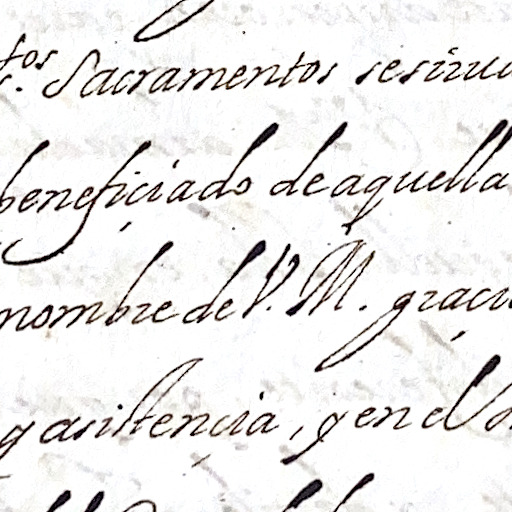 tos. Sacramentos sesirui
beneficiado deaquella
nombre de V. M. graçi
y asistençia, y en el